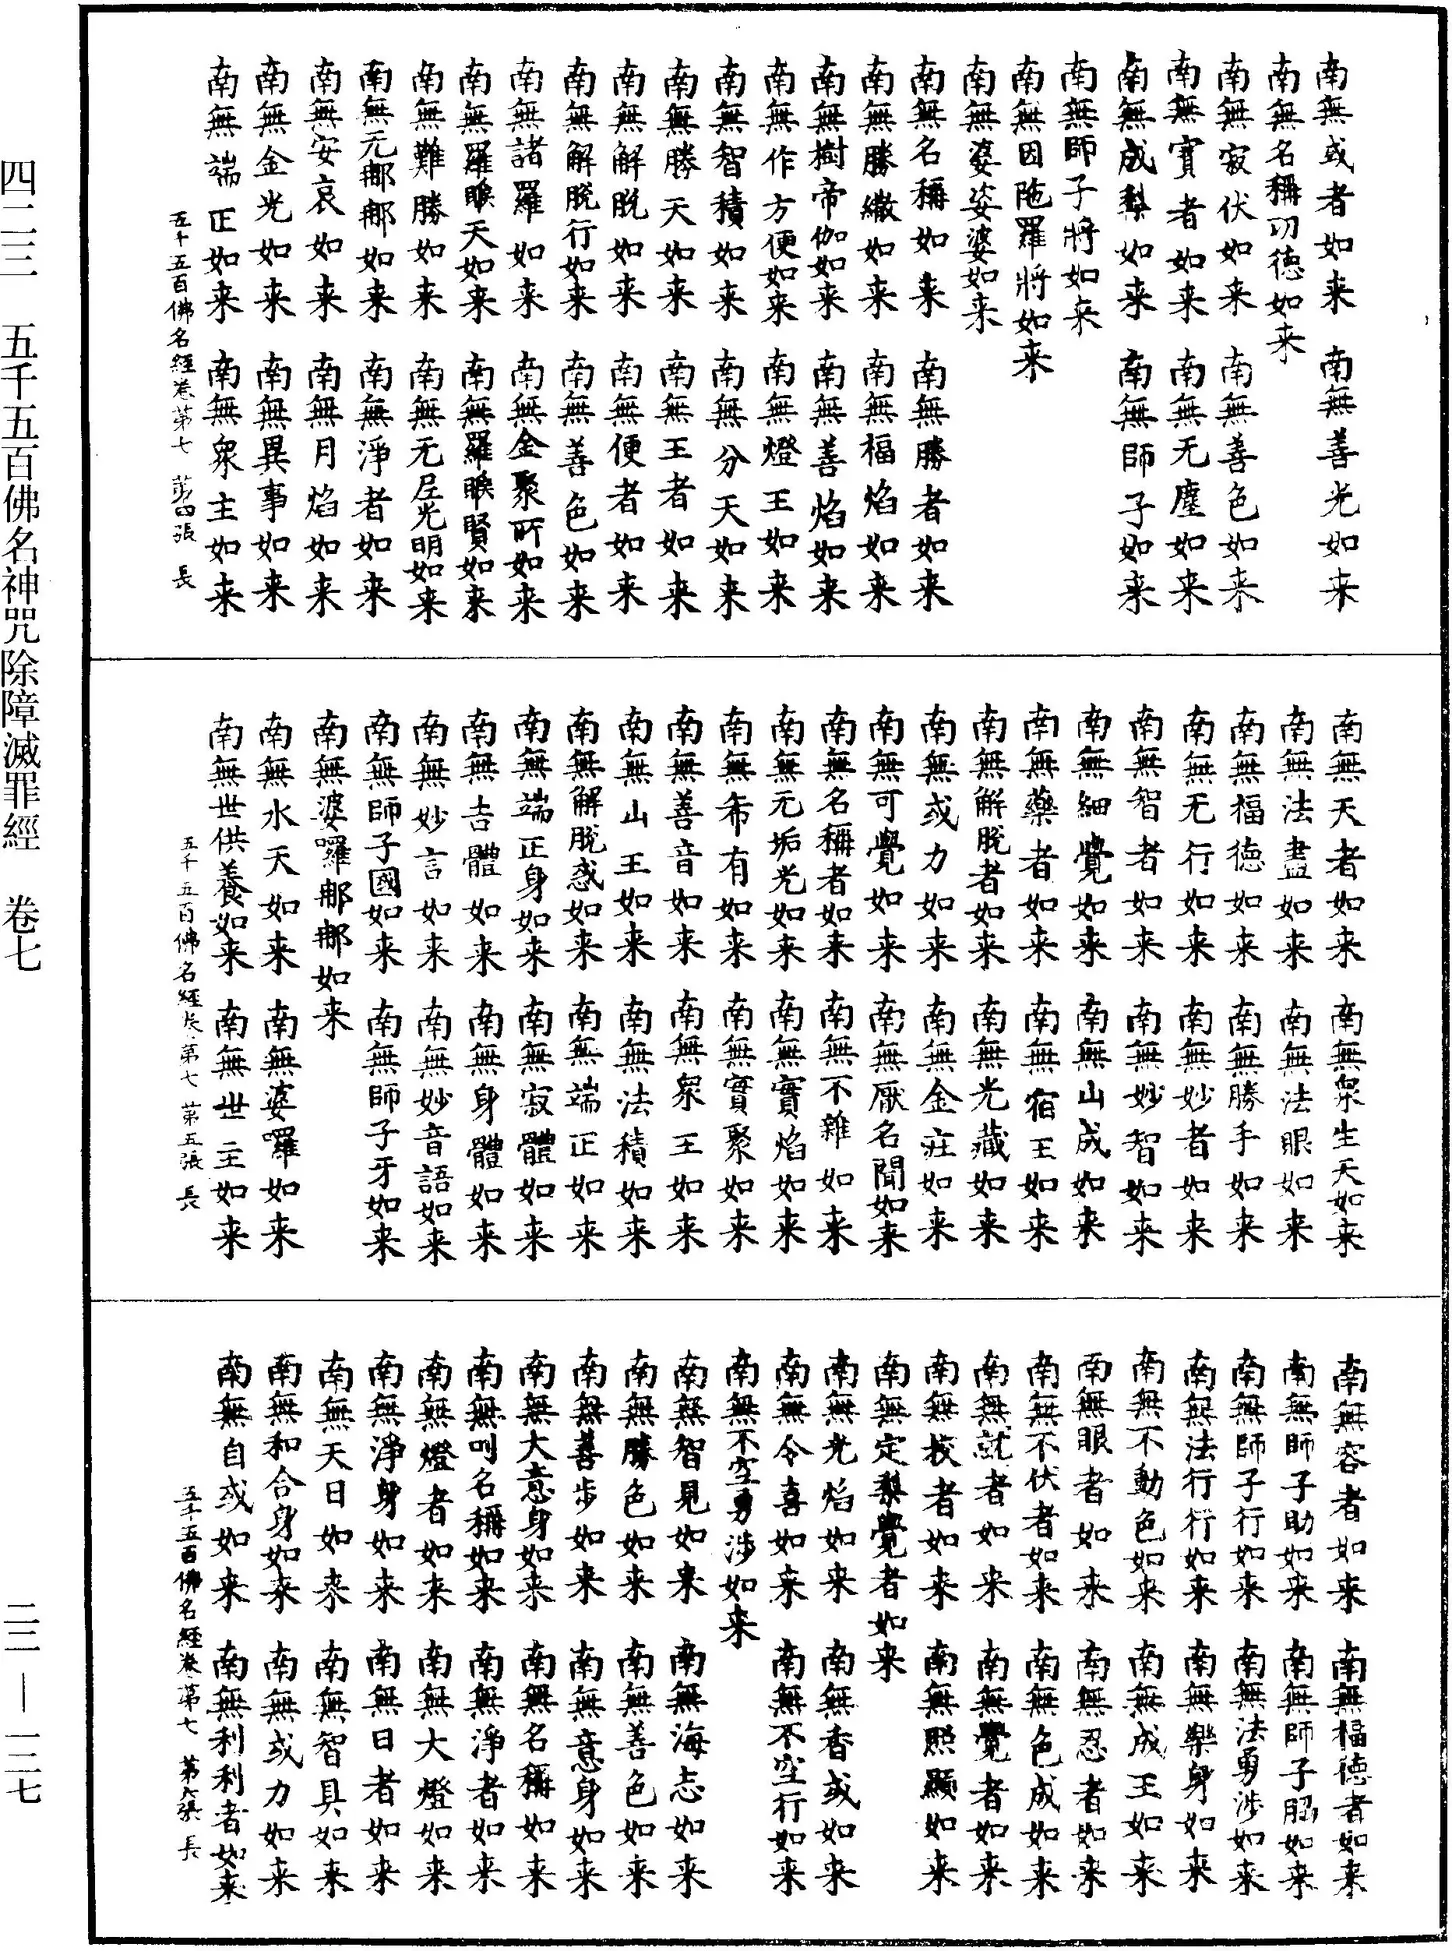 南無或者如来　南無善光如来
南無名稱功德如来
南無寂伏如来　南無善色如来
南無寶者如来　南無无塵如来
南無成梨如来　南無師子如来
南無師子將如来
南無因陁羅將如来
南無婆娑婆如来
南無名稱如来　南無勝者如来
南無勝繖如来　南無福焰如来
南無樹帝伽如来　南無善焰如来
南無作方便如来　南無燈王如来
南無智積如来　南無分天如来
南無勝天如来　南無王者如来
南無解脱如来　南無便者如来
南無解脱行如来　南無善色如来
南無諸羅如来　南無金聚所如来
南無羅睺天如来　南無羅睺賢如来
南無難勝如来　南無无𡰱光明如来
南無元郍郍如来　南無淨者如来
南無安哀如来　南無月焰如来
南無金光如来　南無異事如来
南無端正如来　南無衆主如来
五千五百佛名經卷第七　第四張　長
南無天者如来　南無衆生天如来
南無法盡如来　南無法眼如来
南無福德如来　南無勝手如来
南無无行如来　南無妙者如来
南無智者如来　南無妙智如来
南無細覺如来　南無山成如来
南無藥者如来　南無宿王如来
南無解脱者如来　南無光藏如来
南無或力如来　南無金庄如来
南無可覺如来　南無厭名聞如来
南無名稱者如来　南無不雜如来
南無无垢光如来　南無寶焰如来
南無希有如来　南無實聚如来
南無善音如来　南無衆王如来
南無山王如来　南無法積如来
南無解脱惑如来　南無端正如来
南無端正身如来　南無寂體如来
南無吉體如来　南無身體如来
南無妙言如来　南無妙音語如来
南無師子國如来　南無師子牙如来
南無婆囉郍郍如来
南無水天如来　南無婆囉如来
南無世供養如来　南無世主如来
五千五百佛名經卷第七　第五張　長
南無容者如来　南無福德者如来
南無師子助如来　南無師子如来
南無師子行如来　南無法勇涉如来
南無法行行如来　南無樂身如来
南無不動色如来　南無成王如来
南無眼者如来　南無忍者如来
南無不伏者如来　南無色成如来
南無就者如来　南無覺者如来
南無校者如来　南無照顯如来
南無定梨覺者如来
南無光焰如来　南無香或如来
南無令喜如来　南無不空行如来
南無不空勇涉如来
南無智見如来　南無海志如来
南無勝色如来　南無善色如来
南無善步如来　南無意身如来
南無大意身如来　南無名稱如来
南無叫名稱如来　南無淨者如来
南無燈者如来　南無大燈如来
南無淨身如来　南無日者如来
南無天日如来　南無智具如来
南無和合身如来　南無或力如来
南無自或如来　南無利利者如来
五千五百佛名經卷第七　第六張　長
四二三　五千五百佛名神咒除障滅罪經　卷七　二二—一二七